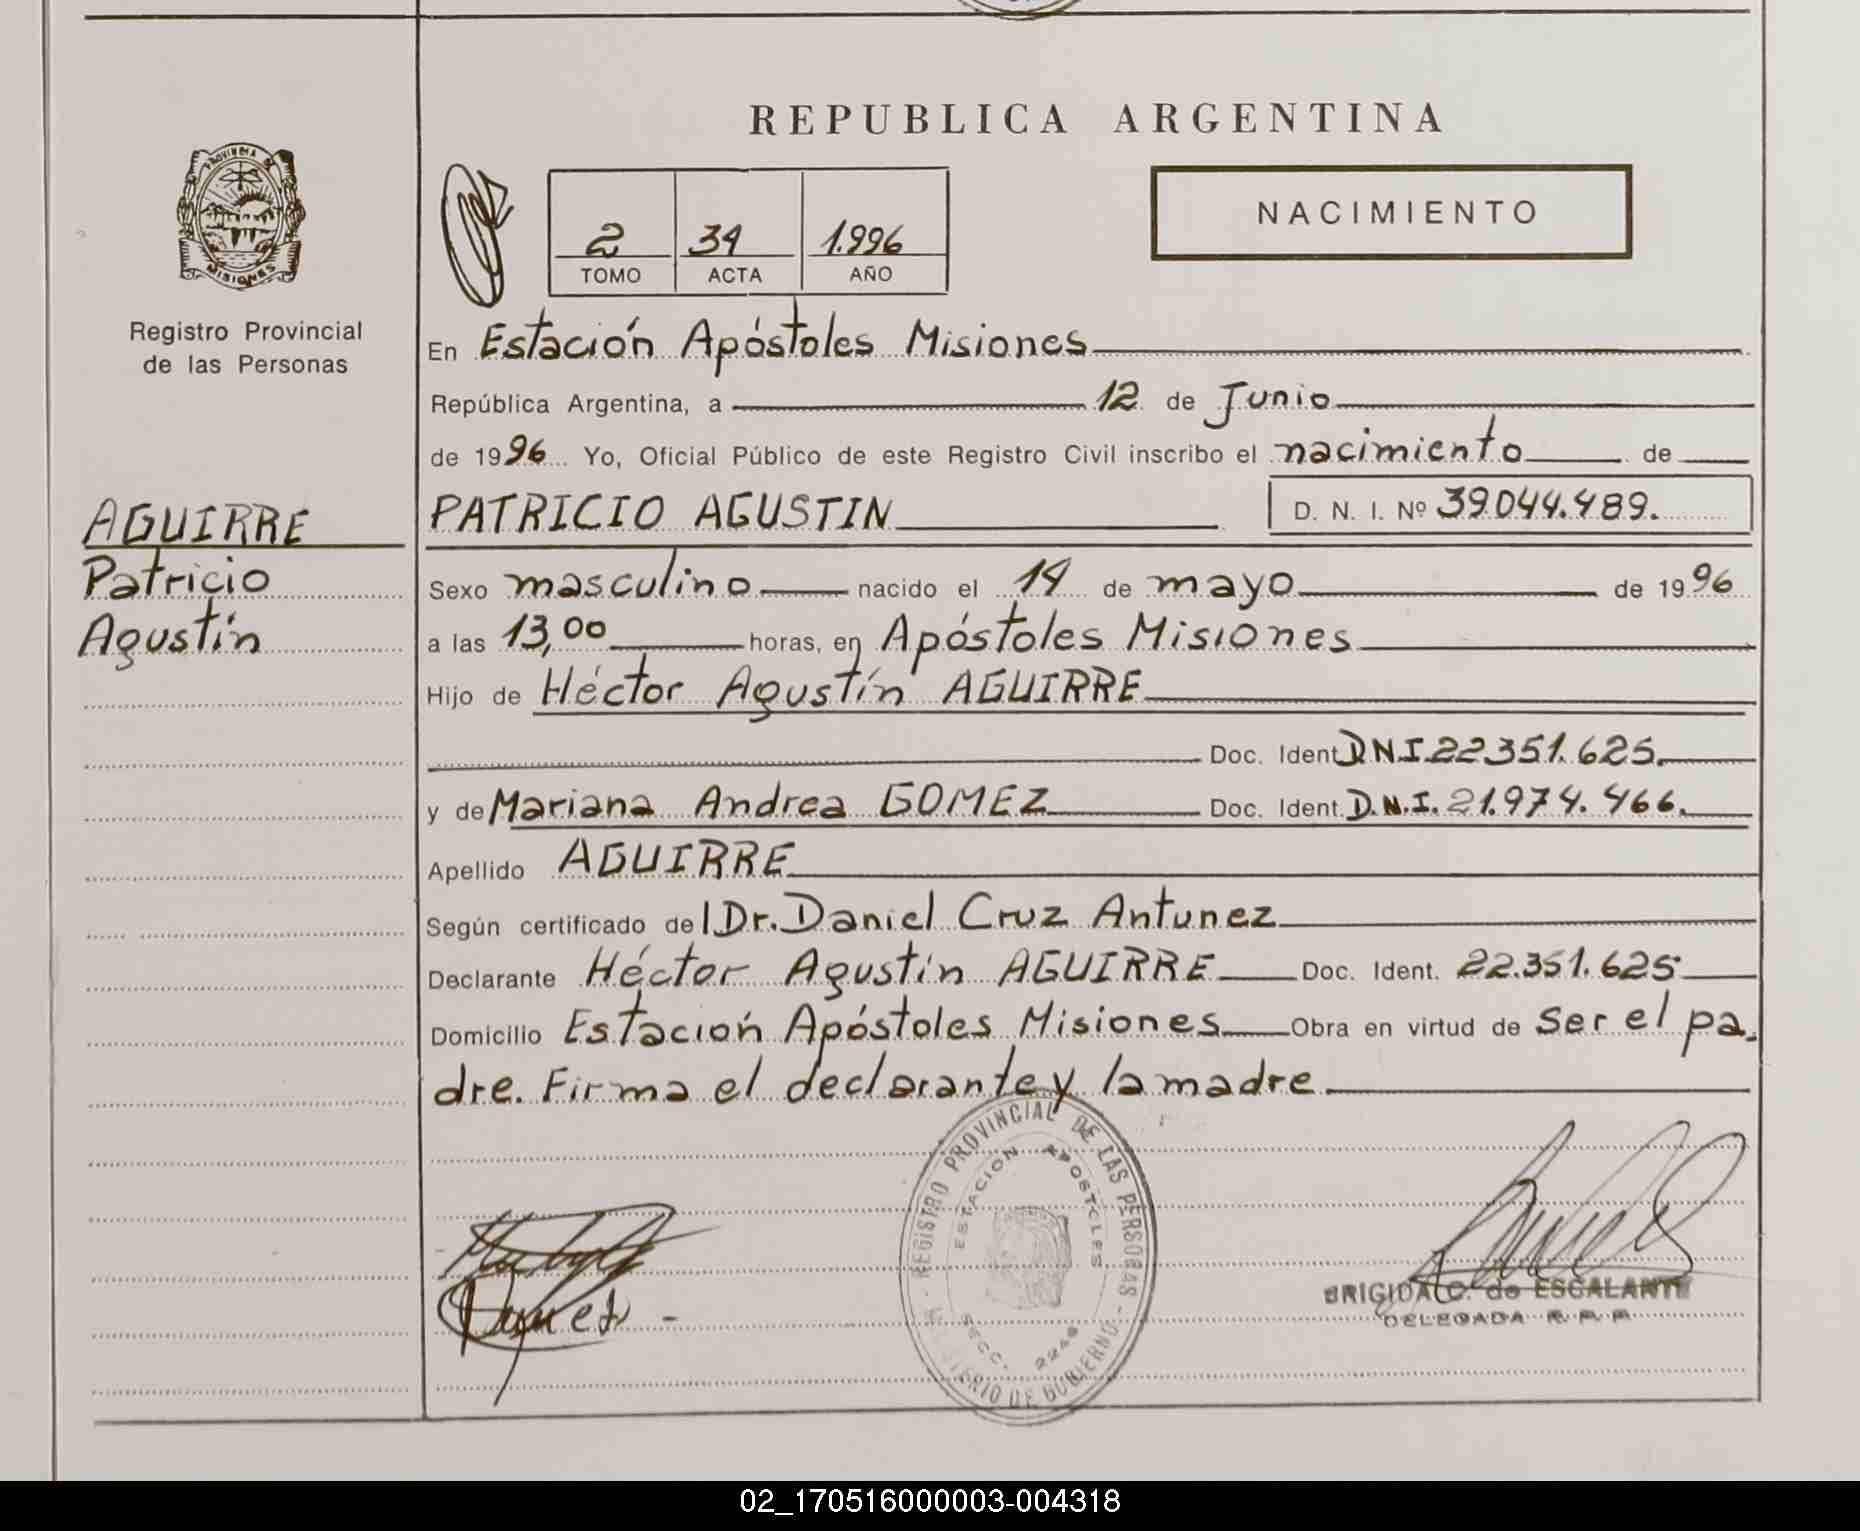 REPUBLICA ARGENTINA
PROVINCIA DE
MISIONES
Registro Provincial
de las Personas
2 34 1.996
TOMO ACTA AÑO
NACIMIENTO
En Estación Apóstoles Misiones
República Argentina, a 12 de Junio
de 1996 Yo, Oficial Público de este Registro Civil inscribo el nacimiento de
AGUIRRE
Patricio
Agustín
PATRICIO AGUSTIN D. N. I. Nº 39.044.489.
Sexo masculino nacido el 14 de mayo de 1996
a las 13,00 horas, en Apóstoles Misiones
Hijo de Héctor Agustín AGUIRRE
Doc. Ident. D.N.I. 22.351.625.
y de Mariana Andrea GOMEZ Doc. Ident. D.N.I. 21.974.466.
Apellido AGUIRRE
Según certificado del Dr. Daniel Cruz Antunez
Declarante Héctor Agustin AGUIRRE Doc. Ident. 22.351.625
Domicilio Estación Apóstoles Misiones Obra en virtud de ser el pa-
dre. Firma el declarante y la madre.
REGISTRO PROVINCIAL DE LAS PERSONAS
ESTACIÓN APOSTOLES
SECC. 2248
MINISTERIO DE GOBIERNO
BRIGIDA C. de ESCALANTE
DELEGADA R. P. P.
02_170516000003-004318